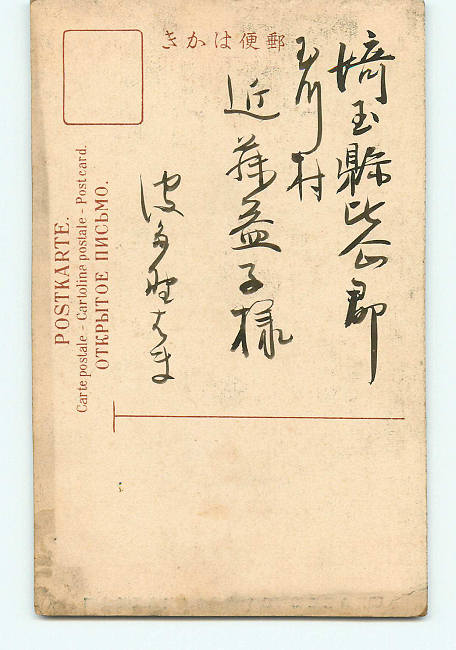 きかは便郵
埼玉縣比企郡
玉川村
近藤益子様
波多野はま
POSTKARTE.
Carte postale - Cartolina postale - Postcard.
ОТКРЫТОЕ ПИСЬМО.